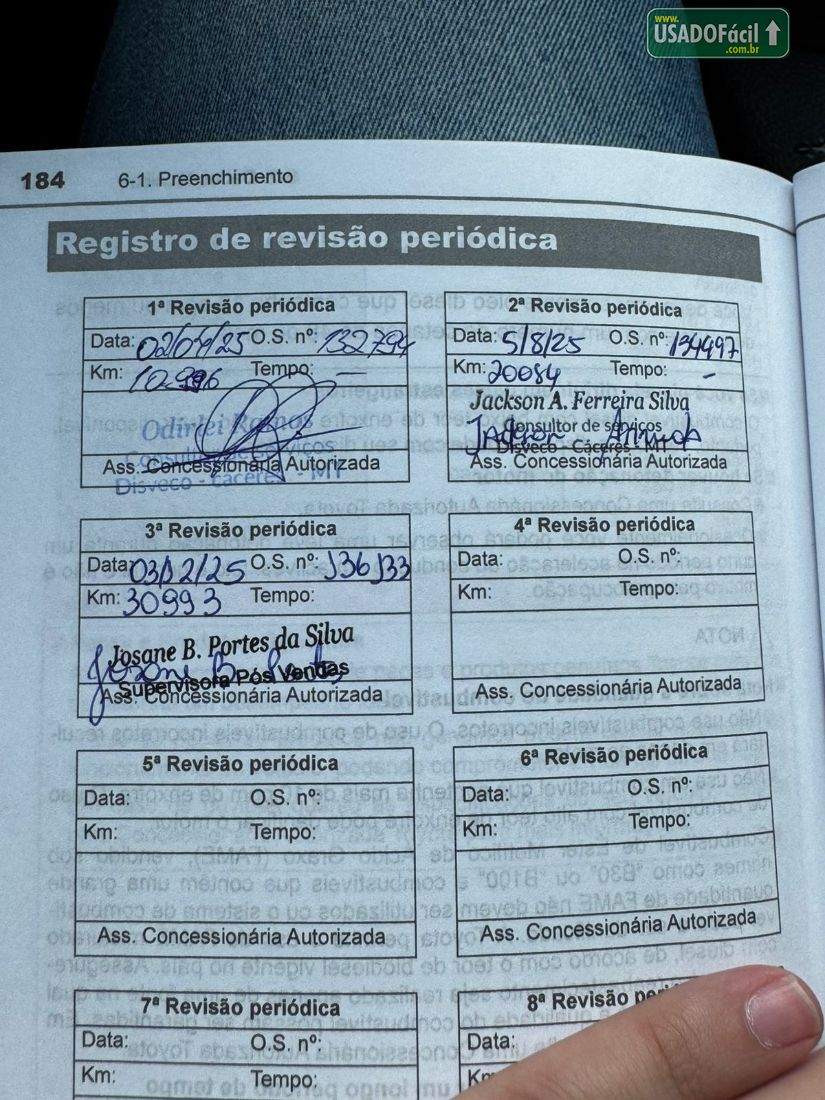 www.
USADOFácil
.com.br
184 6-1. Preenchimento
Registro de revisão periódica
1ª Revisão periódica
Data: 02/04/25 O.S. nº: 132794
Km: Tempo: —
Odirlei Ramos
Consultor de serviços
Disveco - Cáceres - MT
Ass. Concessionária Autorizada
2ª Revisão periódica
Data: 5/8/25 O.S. nº: 134497
Km: 20084 Tempo: -
Jackson A. Ferreira Silva
Consultor de serviços
Disveco - Cáceres - MT
Ass. Concessionária Autorizada
3ª Revisão periódica
Data: 03/12/25 O.S. nº: 136133
Km: 30993 Tempo:
Josane B. Portes da Silva
Supervisora Pós Vendas
Ass. Concessionária Autorizada
4ª Revisão periódica
Data: O.S. nº:
Km: Tempo:
Ass. Concessionária Autorizada
5ª Revisão periódica
Data: O.S. nº:
Km: Tempo:
Ass. Concessionária Autorizada
6ª Revisão periódica
Data: O.S. nº:
Km: Tempo:
Ass. Concessionária Autorizada
7ª Revisão periódica
Data: O.S. nº:
Km: Tempo:
8ª Revisão
Data: